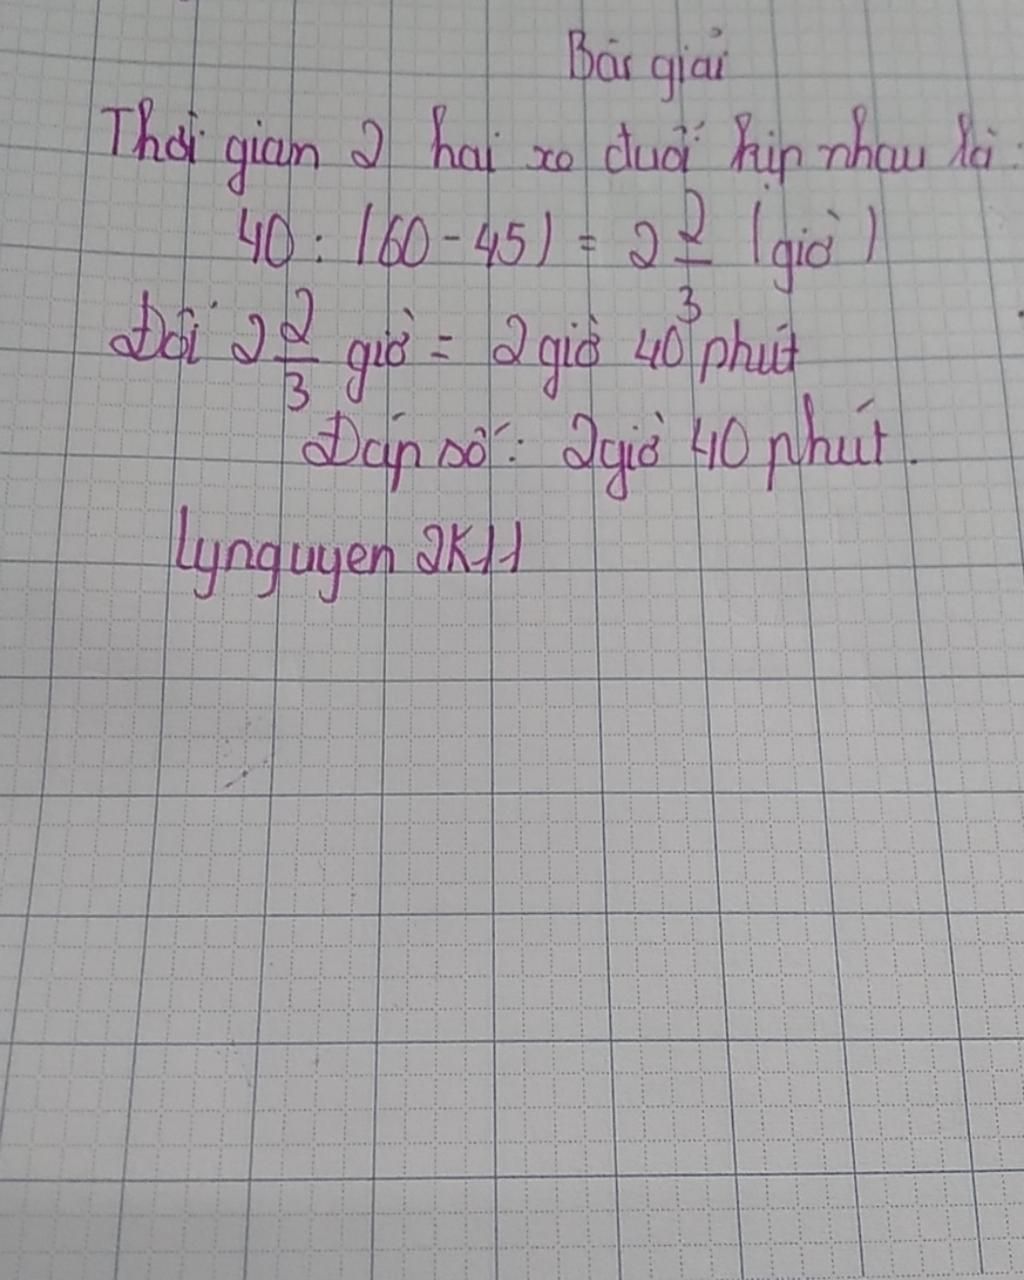 Bài giải
Thời gian 2 hai xe đuổi kịp nhau là:
40 : (60 - 45) = 2 2/3 (giờ)
Đổi 2 2/3 giờ = 2 giờ 40 phút
Đáp số: 2 giờ 40 phút.
lynguyen 2K11